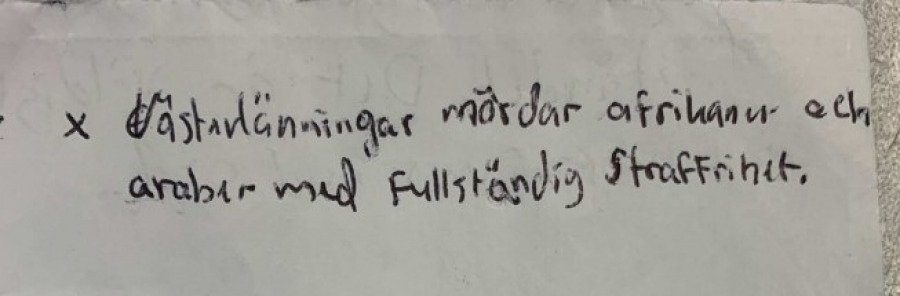 x Västerlänningar mördar afrikaner och
araber med Fullständig StraFFrihet.